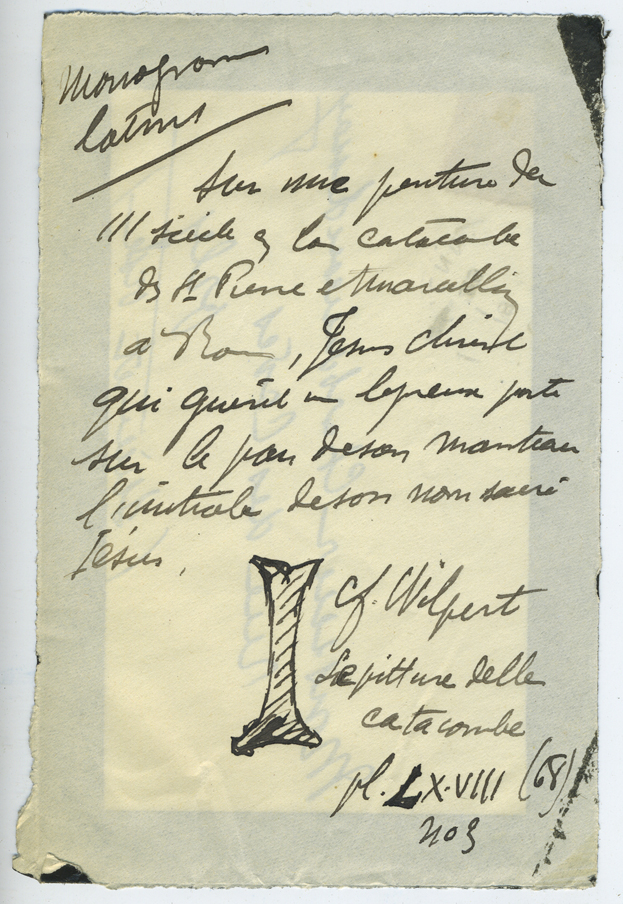 Monogramm
latins
Sur une peinture du
III siècle à la catacombe
de St Pierre et Marcellin
à Rome, Jésus Christ
qui guérit un lépreux porte
sur le pan de son manteau
l'initiale de son nom sacré
Jésus.
I
cf. Wilpert
Le pitture delle
catacombe
pl. LX.VIII (68)
no 3